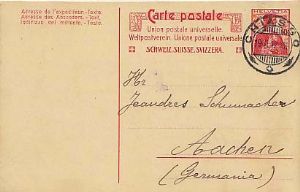 Adresse de l'expéditeur.-Texte.
Adresse des Absenders.-Text.
Indirizzo del mittente.-Testo.
Carte postale
Union postale universelle.
Weltpostverein. Unione postale universale.
SCHWEIZ. SUISSE. SVIZZERA.
HELVETIA
CHIASSO
Hr
Jeandres Schumacher
Aachen
(Germania)